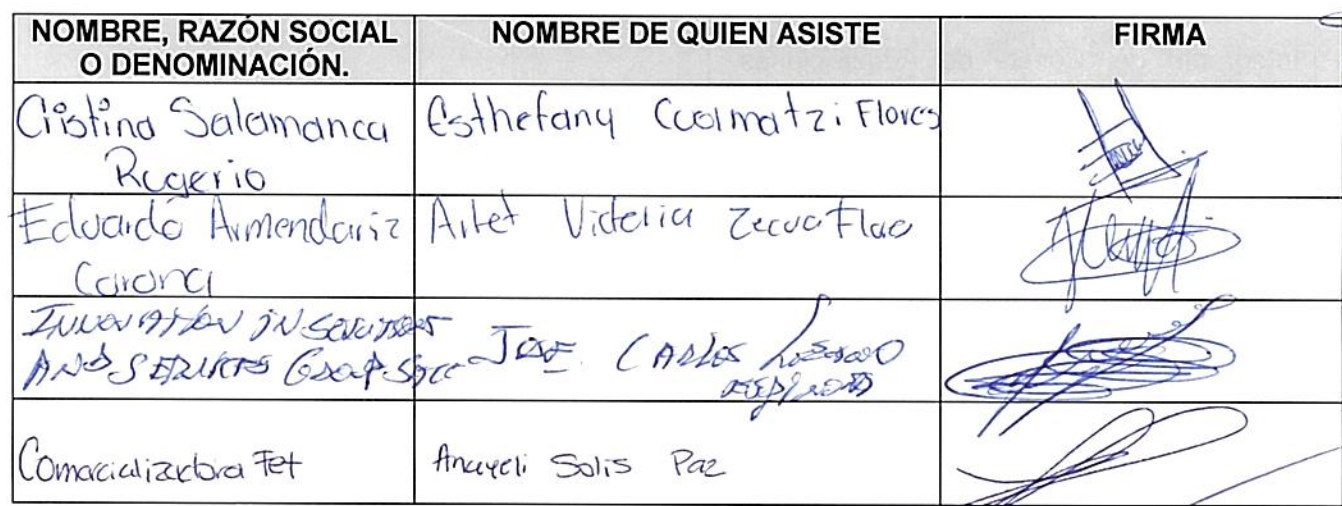 NOMBRE, RAZÓN SOCIAL
O DENOMINACIÓN.
NOMBRE DE QUIEN ASISTE
FIRMA
Cristina Salamanca
Rugerio
Esthefany Cuamatzi Flores
Eduardo Armendariz
Carona
Arlet Victoria
INNOVATION IN
AND SERVICES GROUP
JOSE CARLOS
Comercializadora Fet
Anayeli Solis Paz